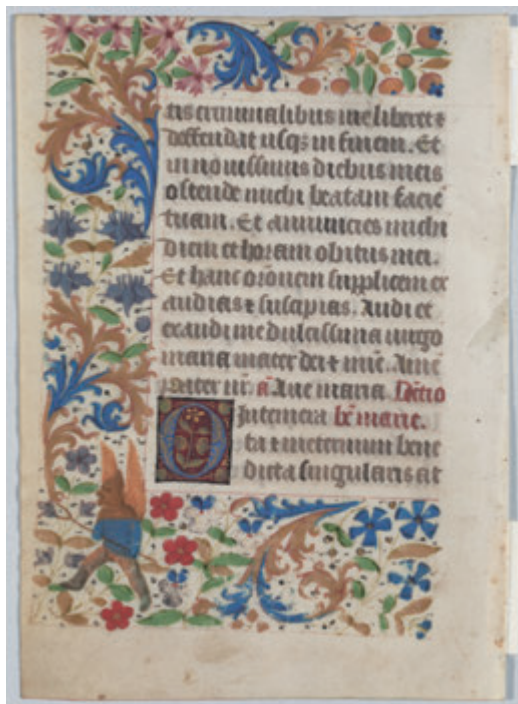 tis criminalibus me liberet ⁊
deffendat usqꝫ in finem. Et
in nouissimis diebus meis
ostende michi beatam facie᷑
tuam. Et annuncies michi
diem et horam obitus mei.
Et hanc oro᷑nem supplicem ex
audias ⁊ suscipias. Audi et
exaudi me dulcissima uirgo
maria mater dei ⁊ mi᷑e. Ame᷑
Pater nr᷑. Aue maria.
O Intemera be᷑ marie.
ta ⁊ ineternum bene
dicta singularis at